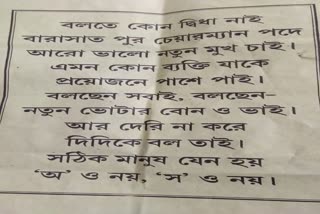 বলতে কোন দ্বিধা নাই
বারাসাত পুর চেয়ারম্যান পদে
আরো ভালো নতুন মুখ চাই।
এমন কোন ব্যক্তি যাকে
প্রয়োজনে পাশে পাই।
বলছেন সবাই, বলছেন-
নতুন ভোটার বোন ও ভাই।
আর দেরি না করে
দিদিকে বল তাই।
সঠিক মানুষ যেন হয়
‘অ’ ও নয়, ‘স’ ও নয়।